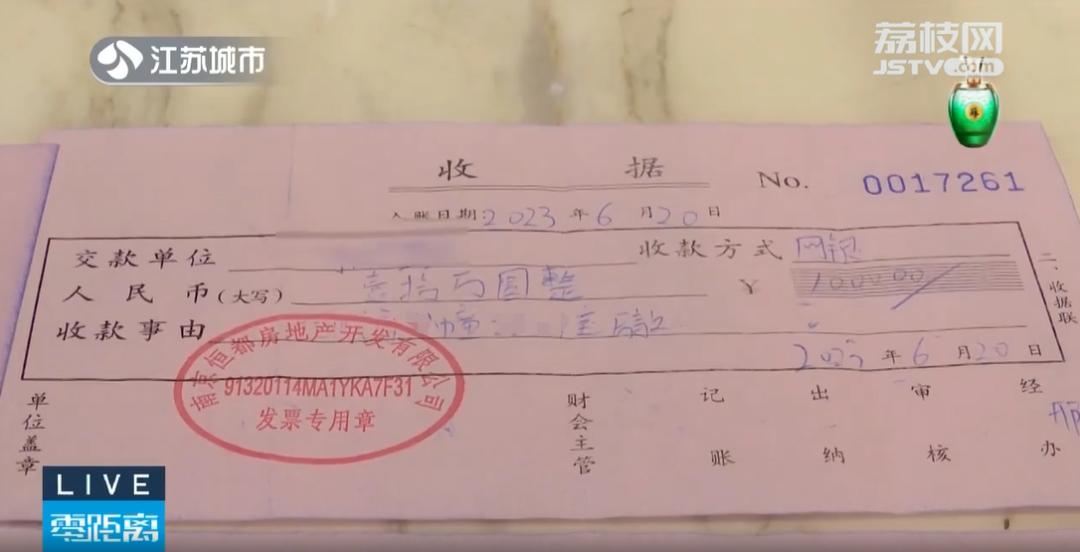 江苏城市
荔枝网
JSTV.com
收 据 No. 0017261
入账日期:2023年6月20日
交款单位 收款方式 网银
人民币(大写) 壹拾万圆整 ¥ 100000
收款事由 幢
2023年6月20日
二、收据联
南京恒都房地产开发有限公司
91320114MA1YKA7F31
发票专用章
单位盖章 财会主管 记账 出纳 审核 经办
LIVE
零距离